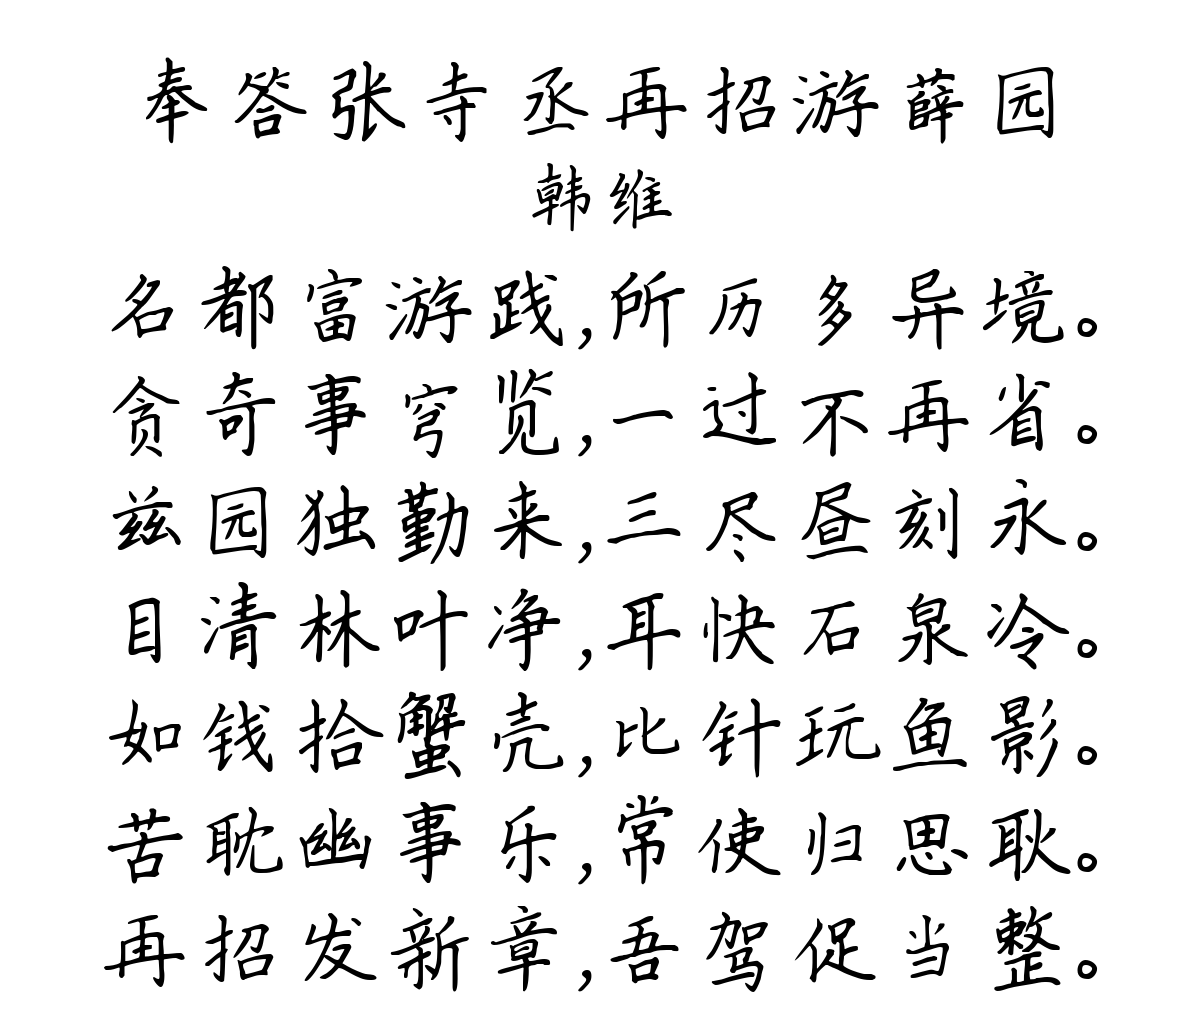 奉答张寺丞再招游薛园
韩维
名都富游践,所历多异境。
贪奇事穹览,一过不再省。
兹园独勤来,三尽昼刻永。
目清林叶净,耳快石泉冷。
如钱拾蟹壳,比针玩鱼影。
苦耽幽事乐,常使归思耿。
再招发新章,吾驾促当整。